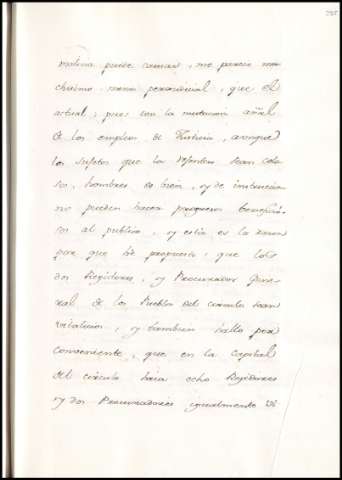 malicia puede causar, me parece mu
chisimo menos perjudicial, que el
actual; pues con la mutacion añal
de los empleos de Justicia, aunque
los sujetos que la obtenten sean celo
sos, hombres de bien, y de instruccion
no pueden hacer progresos beneficio
sos al publico, y esta es la razon
por que he propuesto, que los
dos Regidores, y Procurador Gene
ral de los Pueblos del circulo sean
vitalicios, y tambien hallo por
conveniente, que en la Capital
del circulo haia ocho Regidores
y dos Procuradores igualmente vi